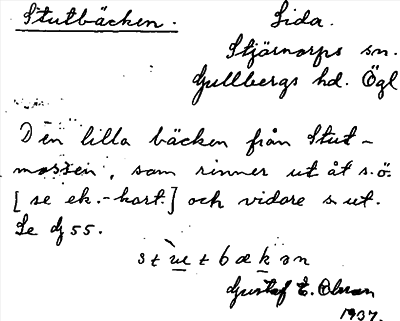 Stutbäcken. Sida.
Stjärnorps sn.
Gullbergs hd. Ögl
Den lilla bäcken från Stut-
mossen, som rinner ut åt s.ö.
[se ek.-kart.] och vidare s. ut.
Se G 55.
stùtbækən
Gustaf E. Olsson
1937.